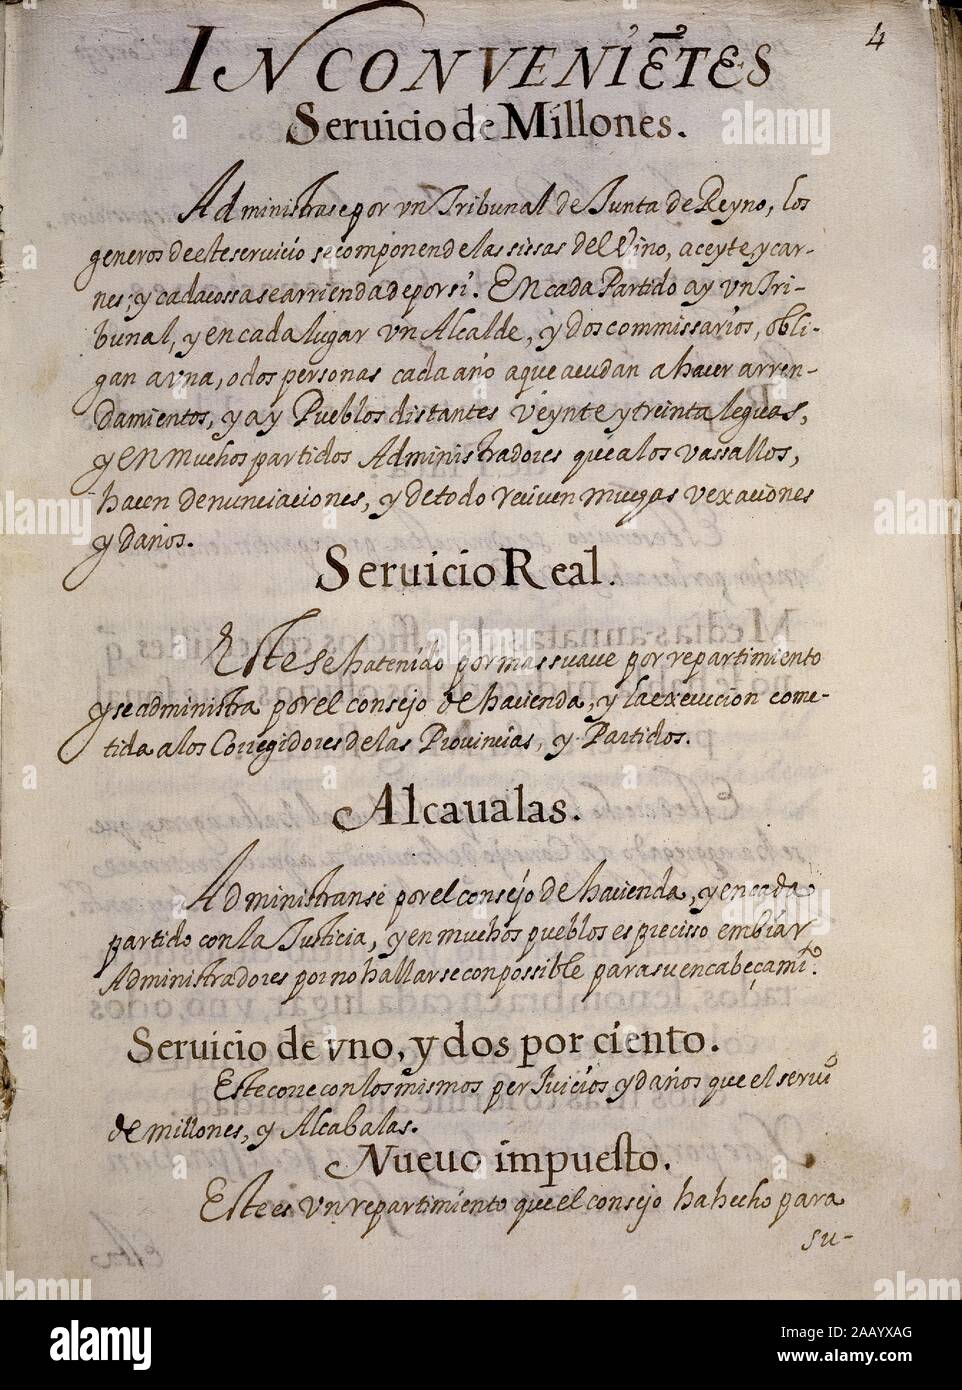 4
INCONVENIẼTES
Seruicio de Millones.
Administrase por vn Tribunal de Junta de Reyno, los
generos de este seruicio se componen de las sissas del Vino, aceyte, y car-
nes; y cada cossa se arrienda de por si. En cada Partido ay vn Tri-
bunal, y en cada lugar vn Alcalde, y dos commissarios, obli-
gan a vna, o dos personas cada año a que acudan a hacer arren-
damientos, y ay Pueblos distantes veynte y treinta leguas,
y en muchos partidos Administradores que a los vassallos,
hacen denunciaciones, y de todo reciven muchas vexaciones
y daños.
Seruicio Real.
Este se ha tenido por mas suaue por repartimiento
y se administra por el consejo de hacienda, y la execucion come-
tida a los Corregidores de las Provincias, y Partidos.
Alcaualas.
Administranse por el consejo de hacienda, y en cada
partido con la Justicia, y en muchos pueblos es precisso embiar
Administradores por no hallarse con possible para su encabeçamto.
Seruicio de vno, y dos por ciento.
Este corre con los mismos perJuicios y daños que el serui.o
de millones, y Alcabalas.
Nueuo impuesto.
Este es Vn repartimiento que el consejo ha hecho para
su-
alamy
a
Image ID: 2AAYXAG
www.alamy.com